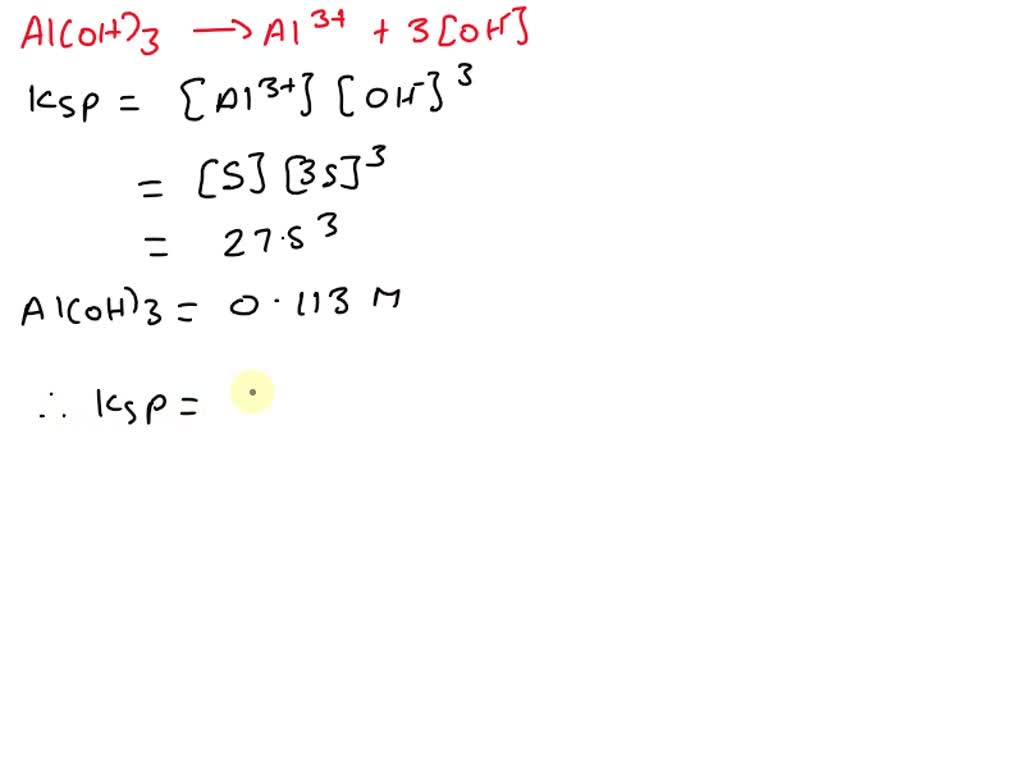 Al(OH)3 → Al3+ + 3[OH-]
Ksp = [Al3+] [OH-]3
= [S] [3s]3
= 27.s3
Al(OH)3 = 0.113 M
∴ Ksp =